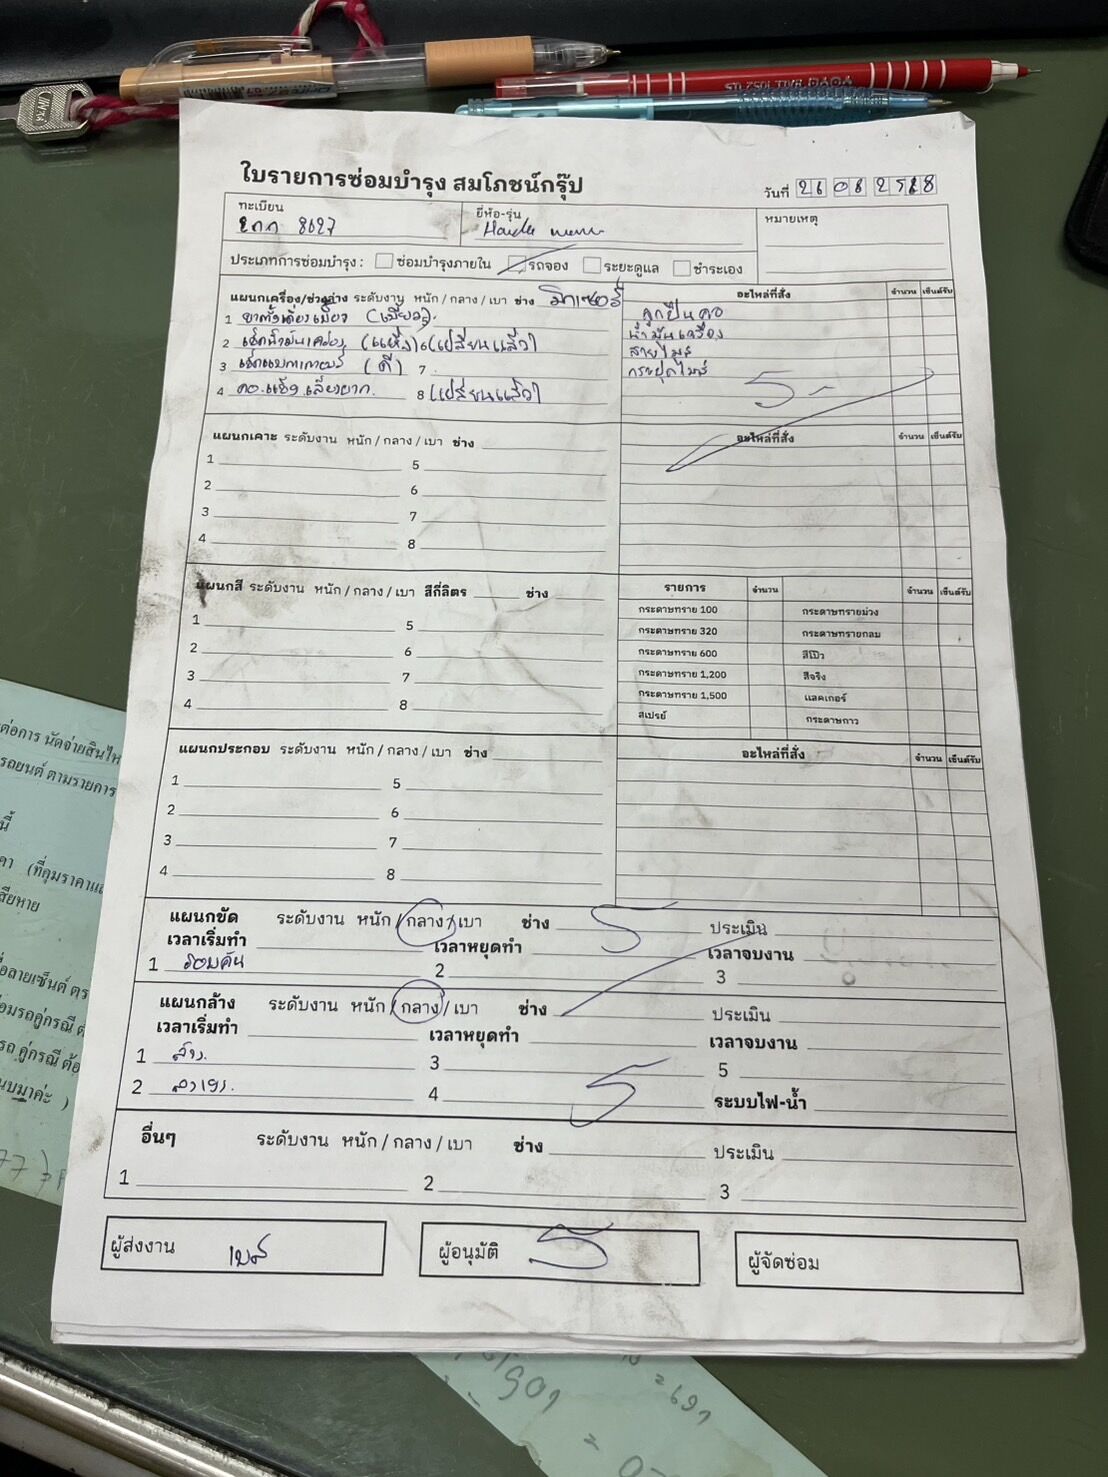 ใบรายการซ่อมบำรุง สมโภชน์กรุ๊ป
วันที่
ทะเบียน 8627
ยี่ห้อ-รุ่น
หมายเหตุ
ประเภทการซ่อมบำรุง : ซ่อมบำรุงภายใน รถจอง ระยะดูแล ชำระเอง
แผนกเครื่อง/ช่วงล่าง ระดับงาน หนัก / กลาง / เบา ช่าง
อะไหล่ที่สั่ง จำนวน เซ็นต์รับ
1
2 (แห้ง) 6 (เปลี่ยนแล้ว)
3 (ดี) 7
4 8 (เปลี่ยนแล้ว)
ลูกปืนคอ
น้ำมันเครื่อง
สายไมล์
กระปุกไมล์
แผนกเคาะ ระดับงาน หนัก / กลาง / เบา ช่าง
อะไหล่ที่สั่ง จำนวน เซ็นต์รับ
1 5
2 6
3 7
4 8
แผนกสี ระดับงาน หนัก / กลาง / เบา สีกี่ลิตร ช่าง
1 5
2 6
3 7
4 8
รายการ จำนวน จำนวน เซ็นต์รับ
กระดาษทราย 100 กระดาษทรายม่วง
กระดาษทราย 320 กระดาษทรายกลม
กระดาษทราย 600 สีโป๊ว
กระดาษทราย 1,200 สีจริง
กระดาษทราย 1,500 แลคเกอร์
สเปรย์ กระดาษกาว
แผนกประกอบ ระดับงาน หนัก / กลาง / เบา ช่าง
อะไหล่ที่สั่ง จำนวน เซ็นต์รับ
1 5
2 6
3 7
4 8
แผนกขัด ระดับงาน หนัก / กลาง / เบา ช่าง ประเมิน
เวลาเริ่มทำ เวลาหยุดทำ เวลาจบงาน
1 รอบคัน 2 3
แผนกล้าง ระดับงาน หนัก / กลาง / เบา ช่าง ประเมิน
เวลาเริ่มทำ เวลาหยุดทำ เวลาจบงาน
1 3 5
2 4 ระบบไฟ-น้ำ
อื่นๆ ระดับงาน หนัก / กลาง / เบา ช่าง ประเมิน
1 2 3
ผู้ส่งงาน
ผู้อนุมัติ
ผู้จัดซ่อม